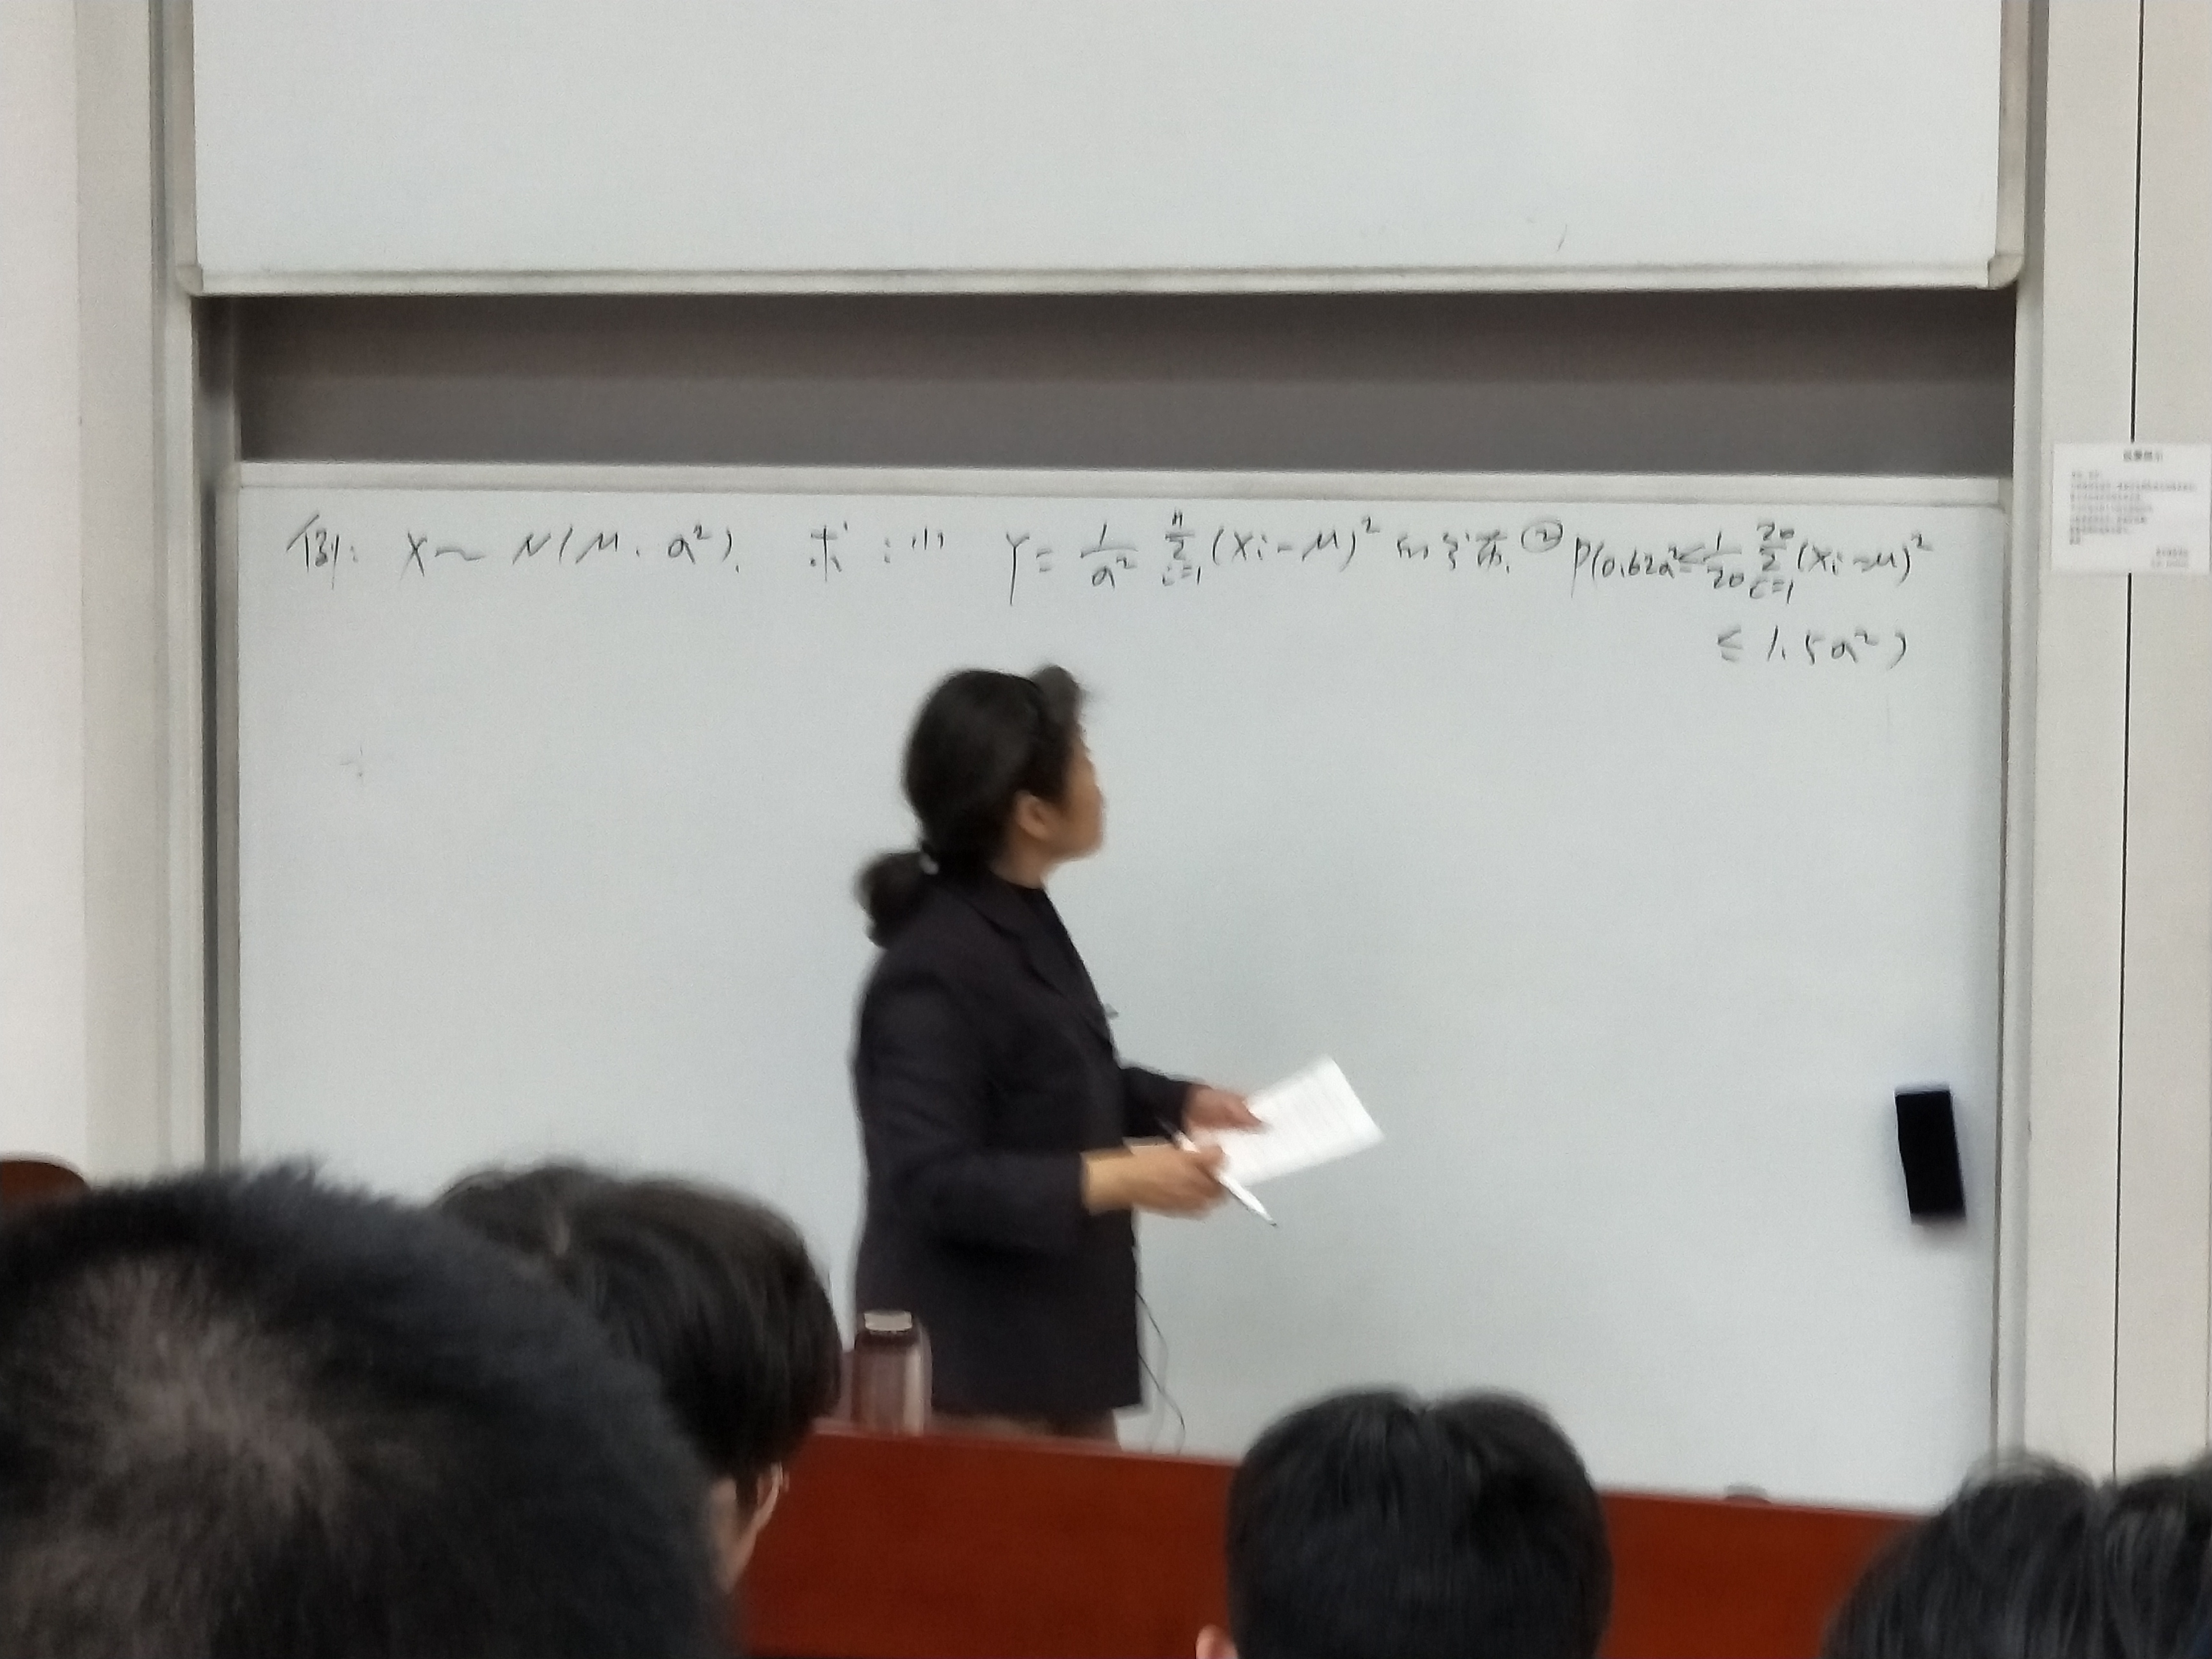 例: X ~ N(μ, a²). 求:(1) Y = 1/a² Σ_{i=1}^{n} (Xi - μ)² 的分布. ② P(0.62a² ≤ 1/20 Σ_{i=1}^{20} (Xi - μ)²
≤ 1.5a²)